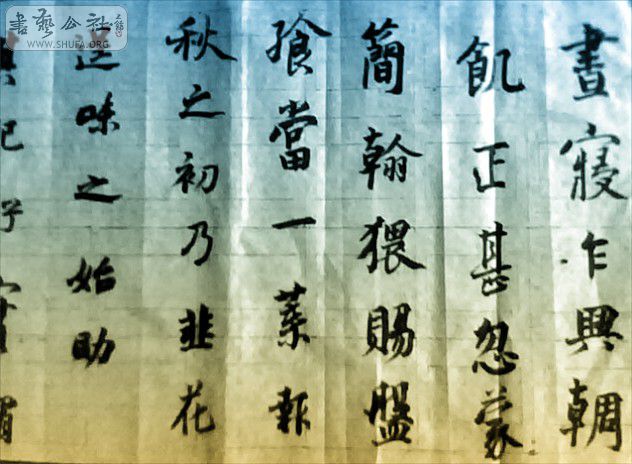 書藝公社
WWW.SHUFA.ORG
晝寢乍興輖
飢正甚忽蒙
簡翰猥賜盤
飧當一葉報
秋之初乃韭花
逞味之始助